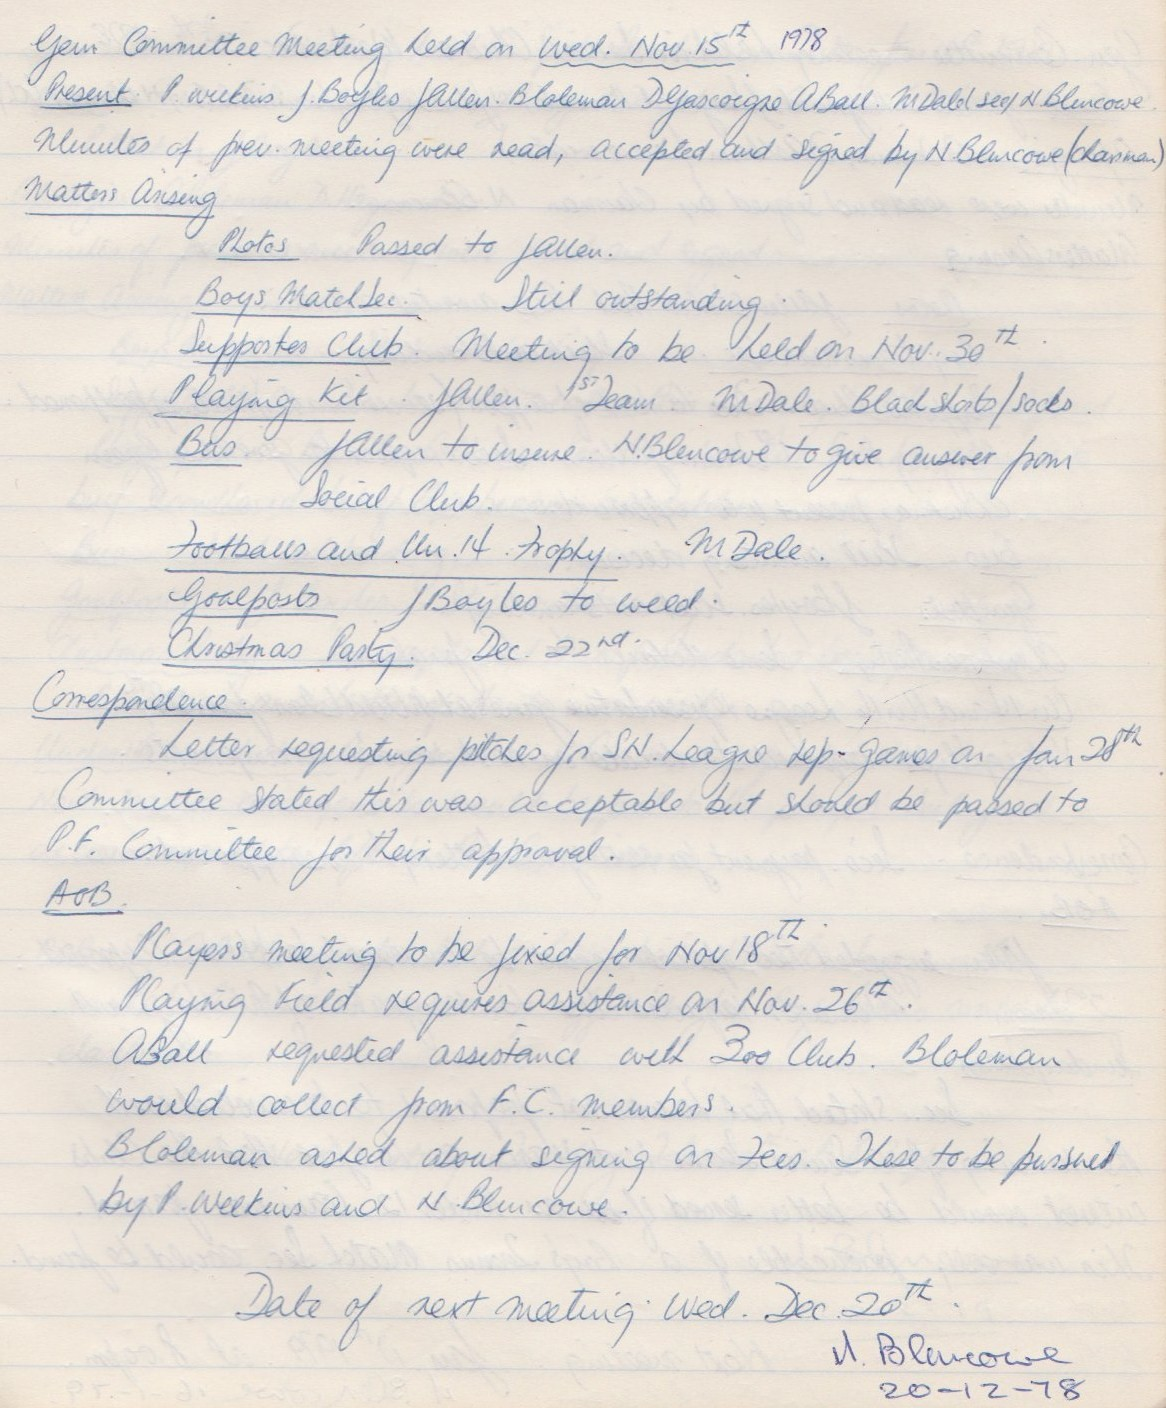 Gen Committee Meeting held on Wed. Nov. 15th 1978
Present. P. Wilkins J. Boyles J Allen. B Coleman D Gascoigne A Ball. M Dale N Blencowe.
Minutes of prev. meeting were read, accepted and signed by N. Blencowe (chairman)
Matters Arising
Photos Passed to J Allen.
Boys Match Sec. Still outstanding.
Supporters Club. Meeting to be held on Nov. 30th.
Playing Kit. J Allen. 1st Team. M Dale. Black Shorts/socks.
Bus. J Allen to insure. N. Blencowe to give answer from
Social Club.
Footballs and Un. 14. Trophy. M Dale.
Goalposts J Boyles to weld.
Christmas Party. Dec. 22nd.
Correspondence.
Letter requesting pitches for S.N. League rep. games on Jan 28th
Committee stated this was acceptable but should be passed to
P.F. Committee for their approval.
AOB.
Players meeting to be fixed for Nov 18th.
Playing Field requires assistance on Nov. 26th.
A Ball requested assistance with 300 Club. B Coleman
would collect from F.C. members.
B Coleman asked about signing on Fees. These to be pursued
by P. Wilkins and N. Blencowe.
Date of next meeting. Wed. Dec. 20th.
N. Blencowe
20-12-78